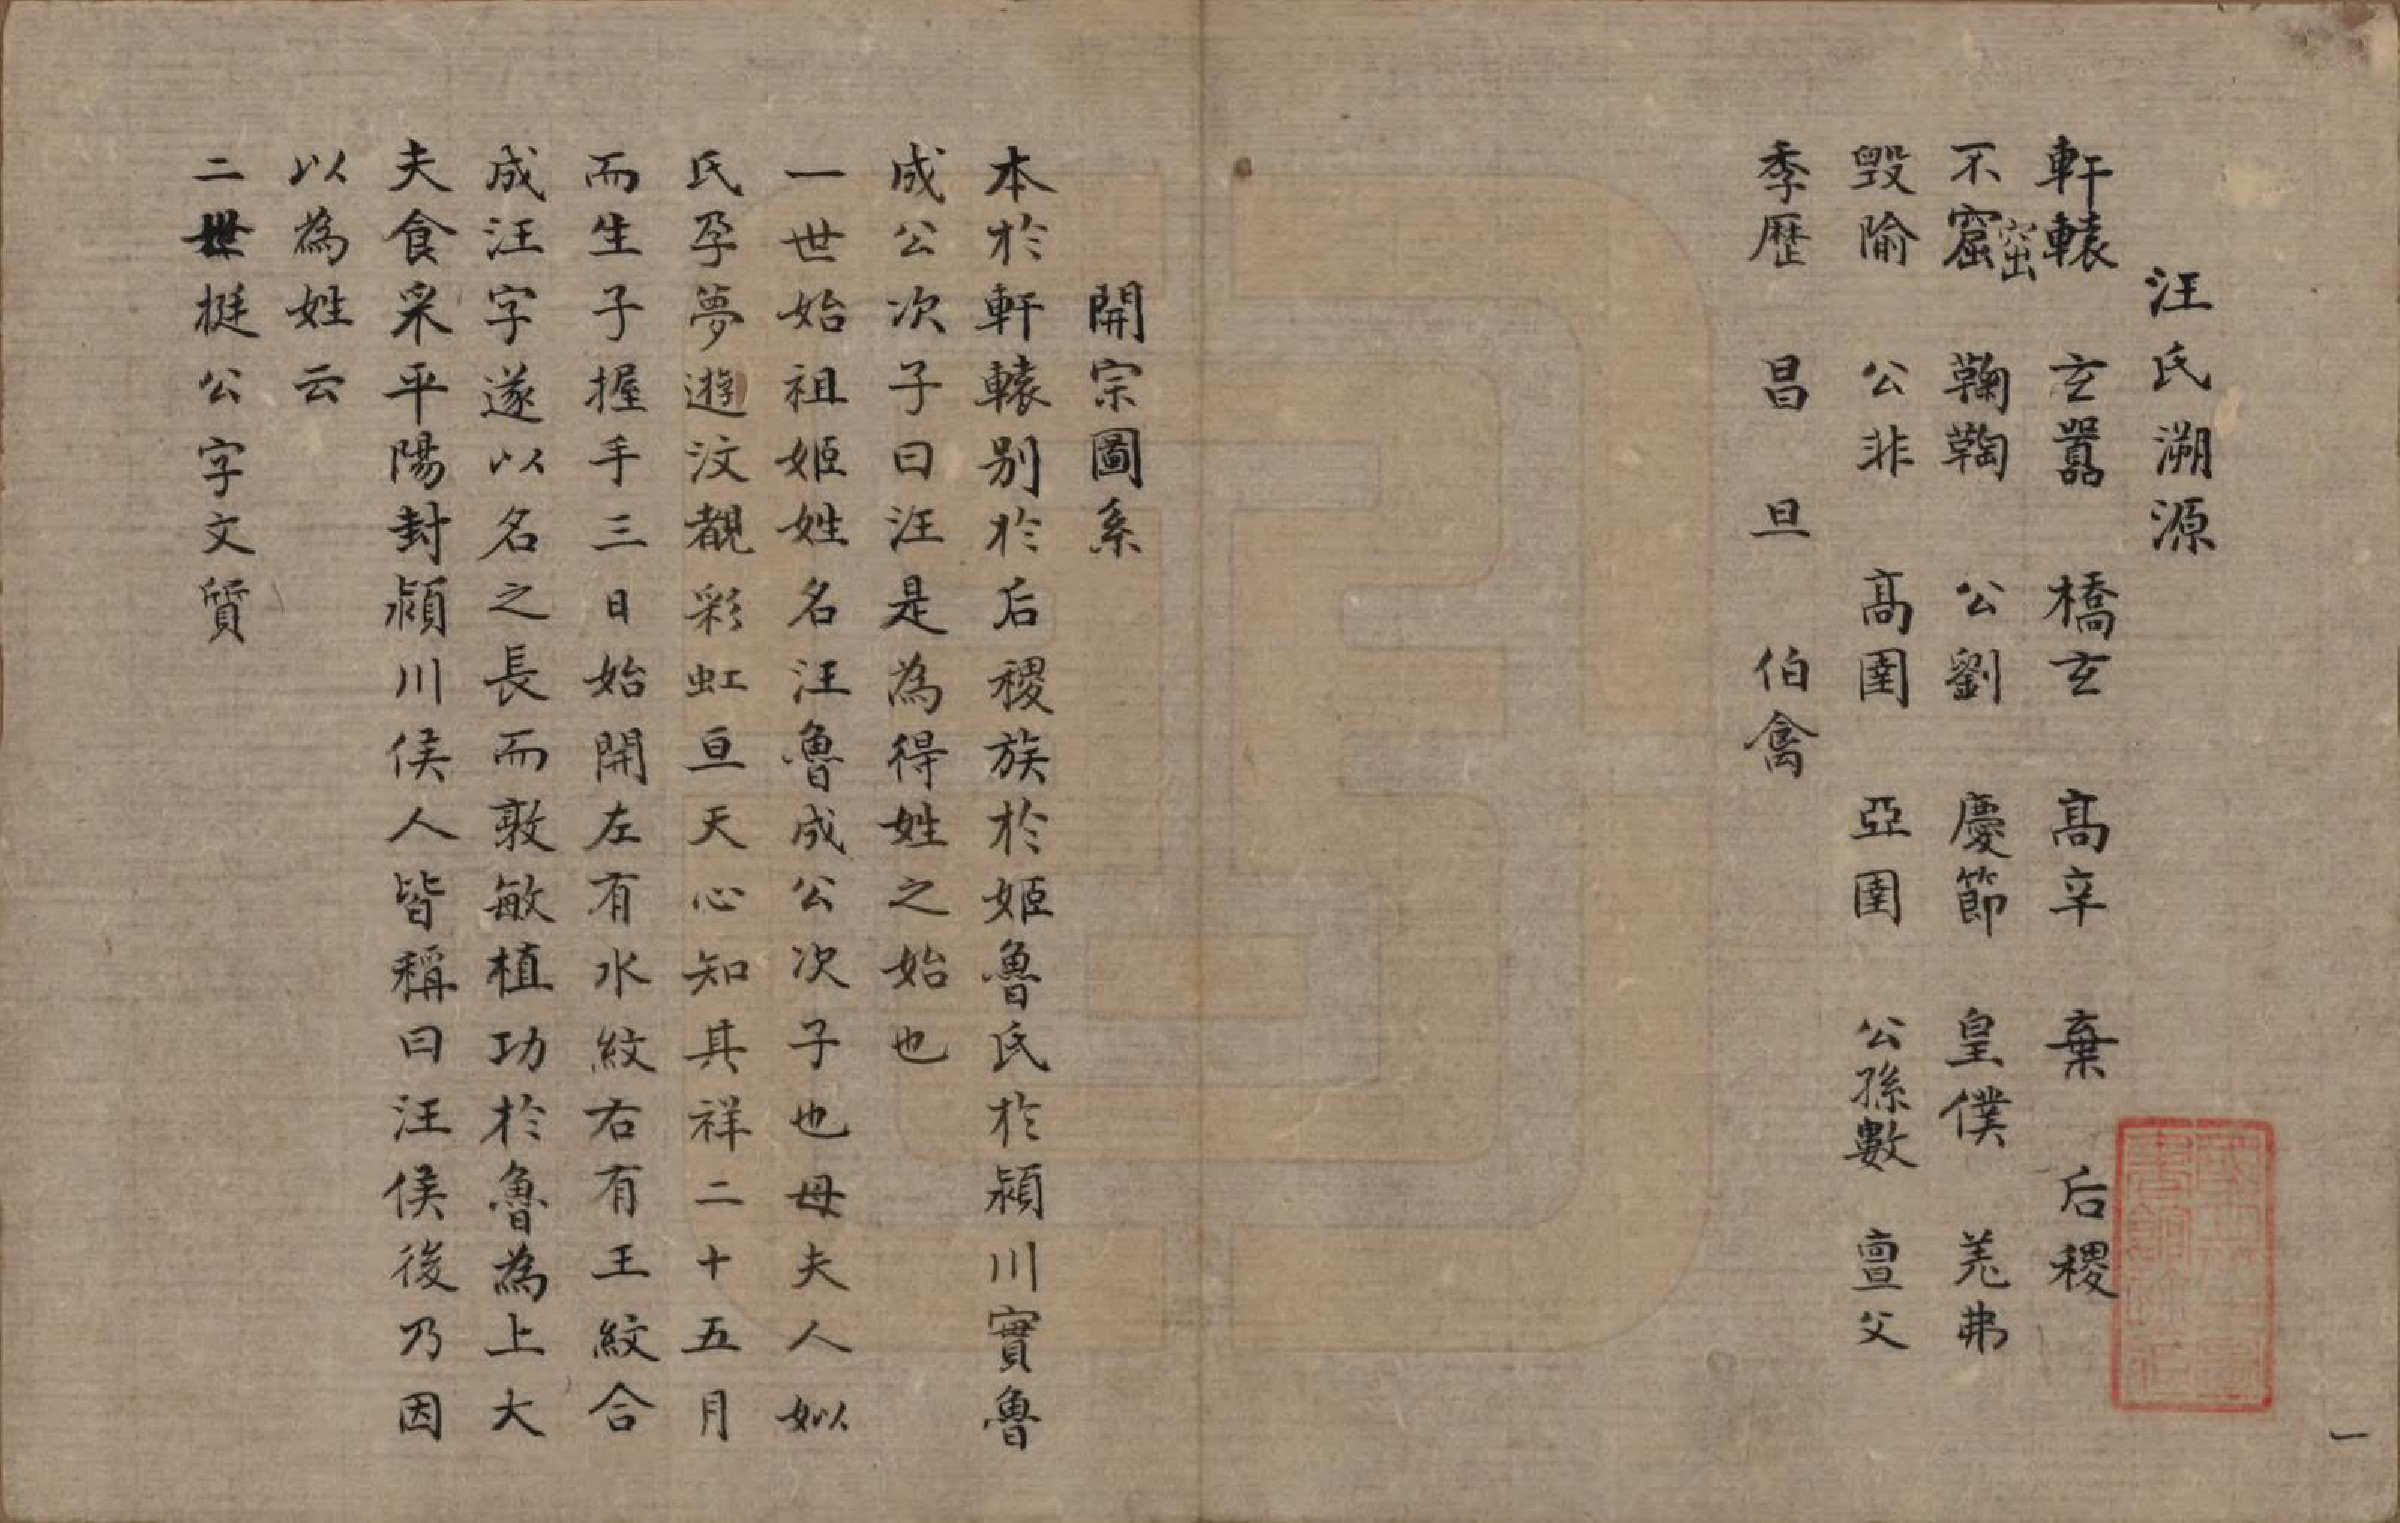 汪氏溯源
軒轅 玄囂 橋玄 高辛 棄 后稷
不窟窋 鞠鞫 公劉 慶節 皇僕 羌弗
毀隃 公非 高圉 亞圉 公孫數 亶父
季歷 昌 旦 伯禽
一
開宗圖系
本於軒轅別於后稷族於姬魯氏於潁川實魯
成公次子曰汪是為得姓之始也
一世始祖姬姓名汪魯成公次子也母夫人姒
氏孕夢遊汶覩彩虹亘天心知其祥二十五月
而生子握手三日始開左有水紋右有王紋合
成汪字遂以名之長而敦敏植功於魯為上大
夫食采平陽封潁川侯人皆稱曰汪侯後乃因
以為姓云
二世挺公字文質